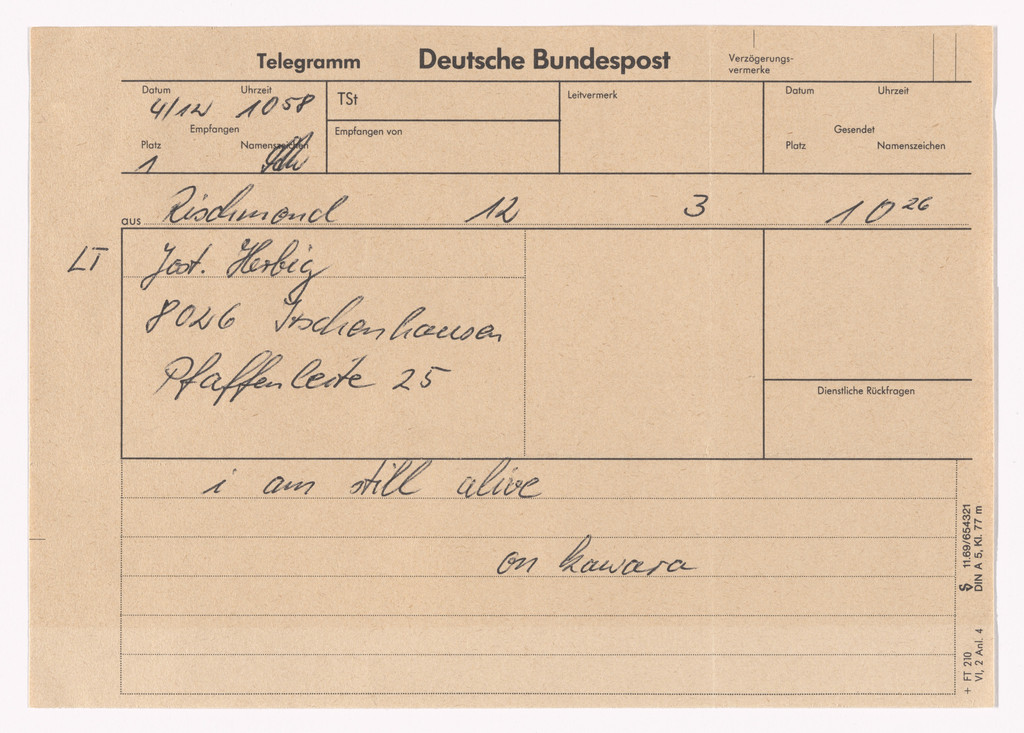 Telegramm Deutsche Bundespost Verzögerungs-
vermerke
Datum Uhrzeit TSt Leitvermerk Datum Uhrzeit
4/12 1058
Empfangen Empfangen von Gesendet
Platz Namenszeichen Platz Namenszeichen
1
aus Rischmond 12 3 10 26
LT Jost. Herbig
8026 Itschenhausen
Pfaffenleite 25
Dienstliche Rückfragen
i am still alive
on kawara
$ 11.69/654321
DIN A 5, Kl. 77 m
+ FT 210
VI, 2 Anl. 4